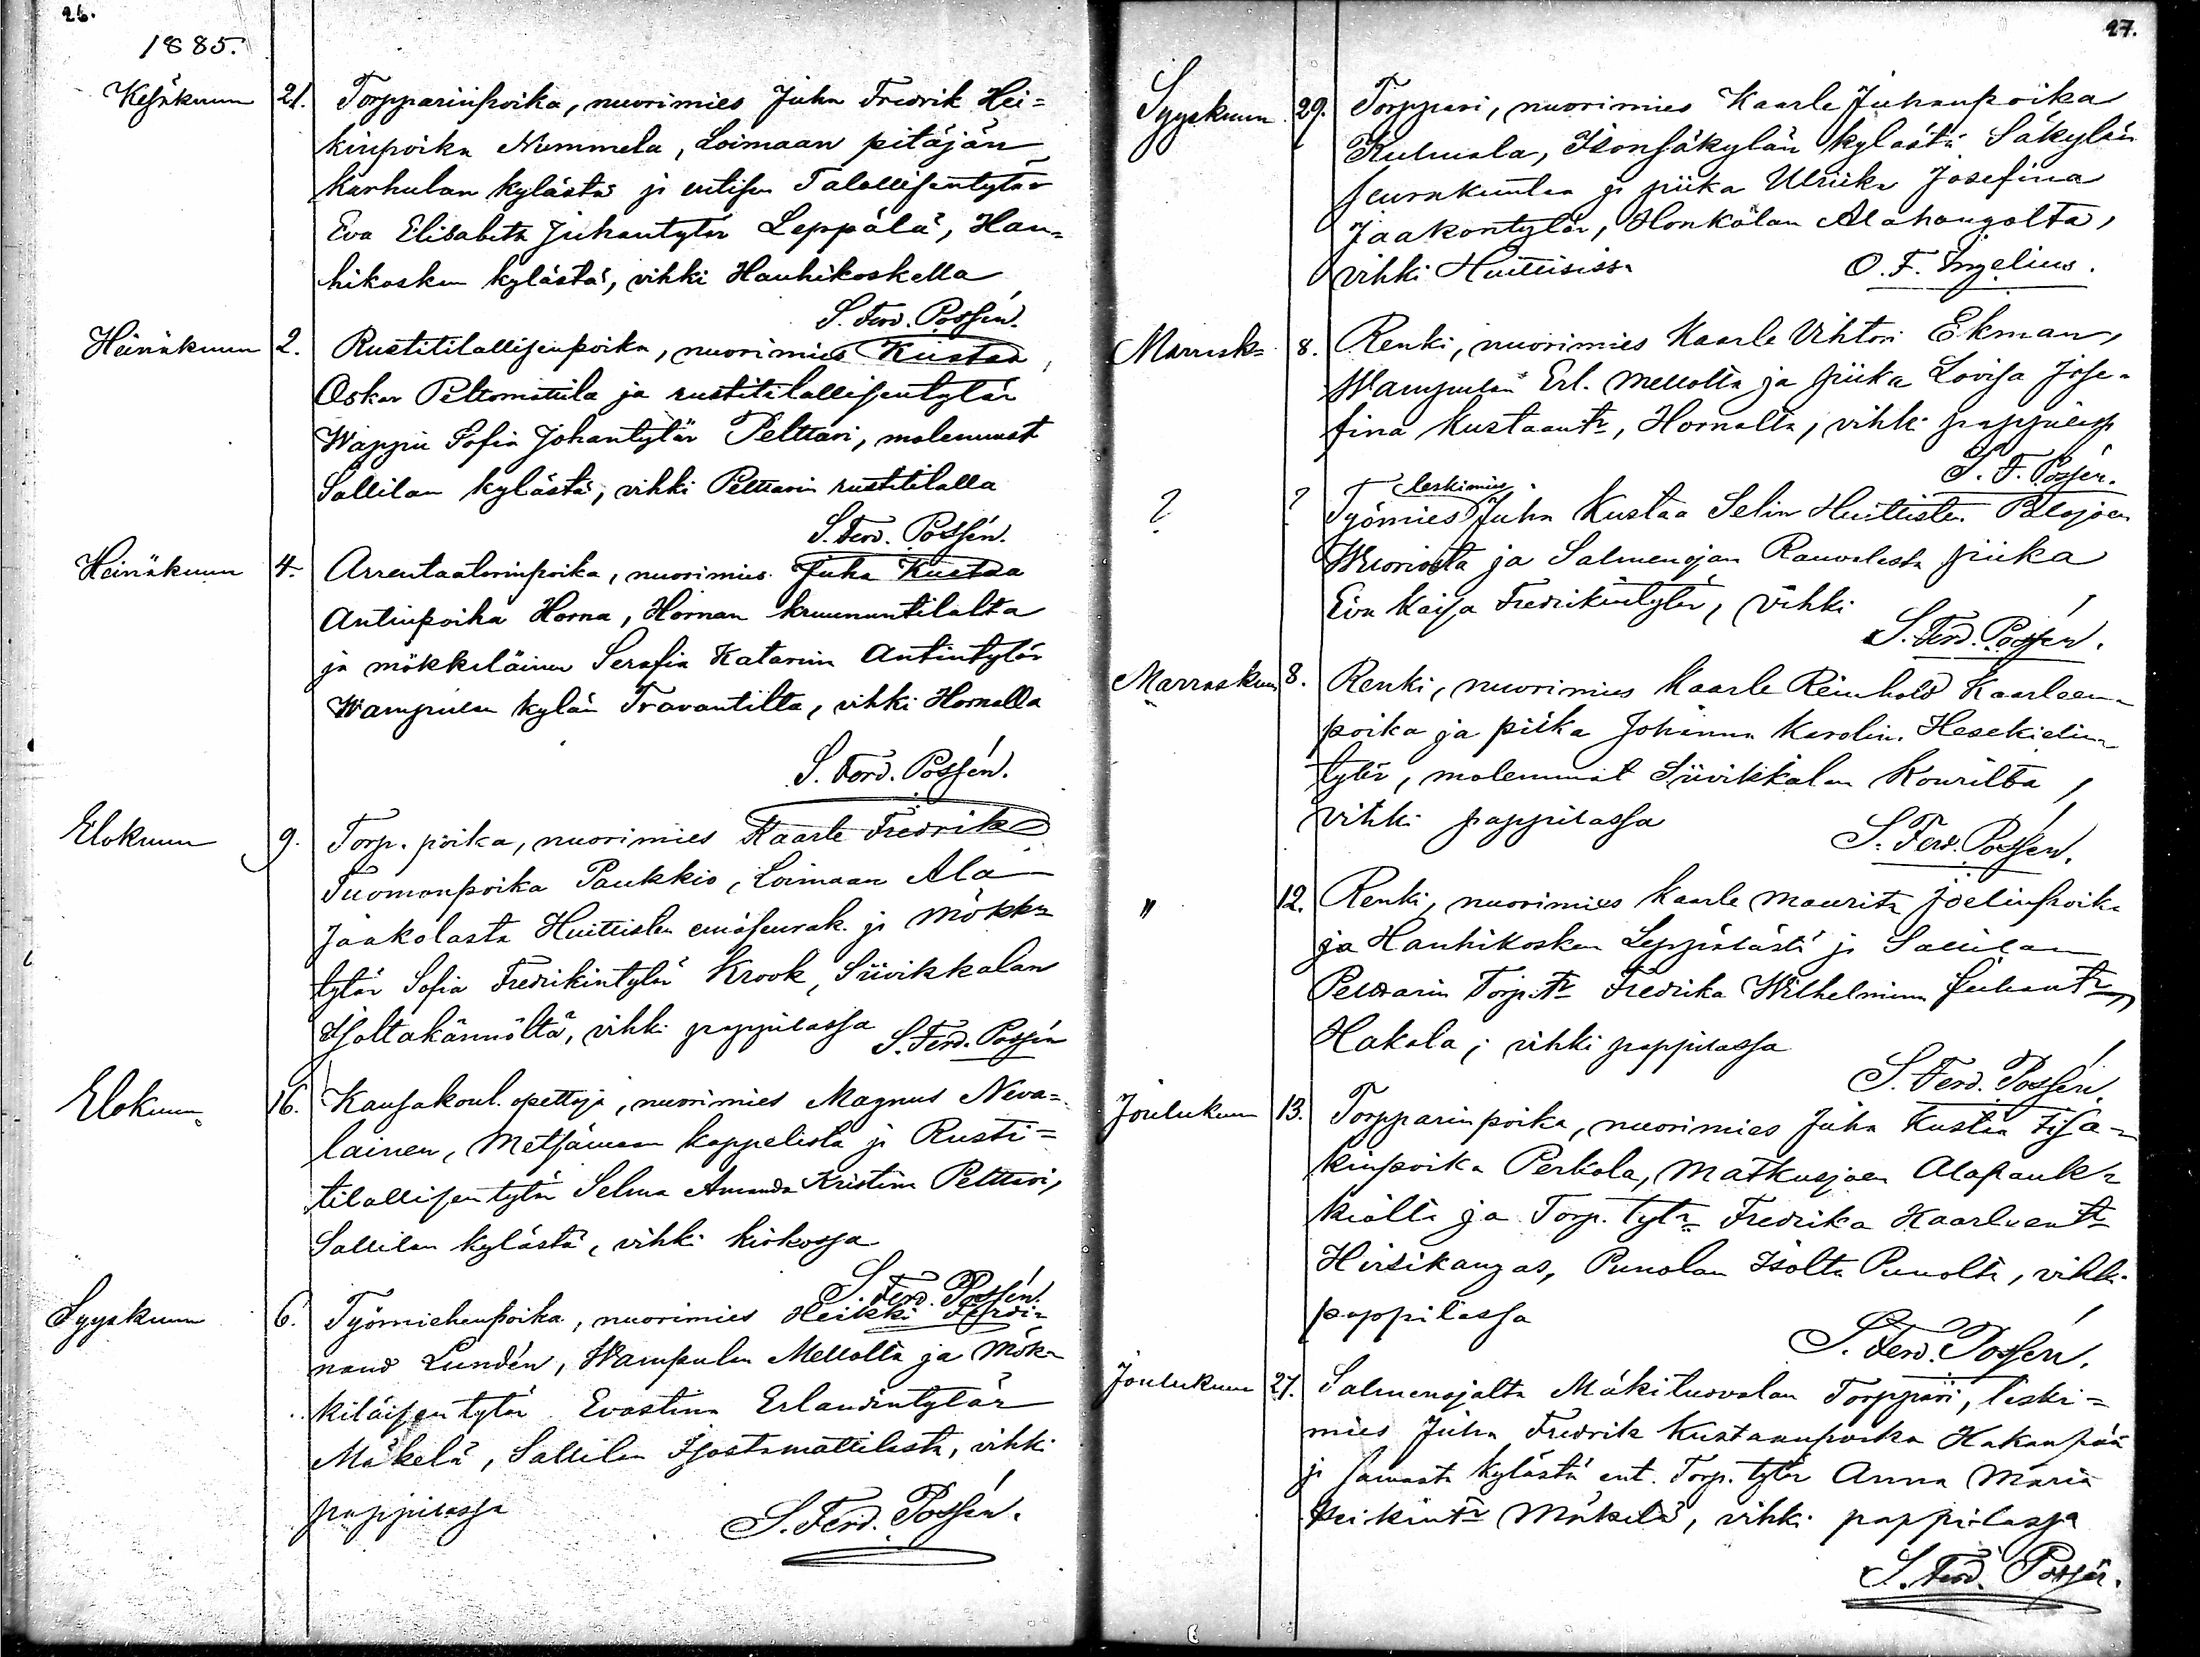 26.
1885.
Kesäkuun 21. Torpparinpoika, nuorimies Juha Fredrik Hei=
kinpoika Nummela, Loimaan pitäjän
Karhulan kylästä ja entisen Talollisentytär
Eva Elisabeta Juhantytär Leppälä, Han=
hikosken kylästä, vihki Hanhikoskella
S. Ferd. Possén.
Heinäkuun 2. Rustitilallisenpoika, nuorimies Kustaa
Oskar Peltomattila ja rustitilallisentytär
Wappu Sofia Johantytär Pelttari, molemmat
Sallilan kylästä, vihki Pelttarin rustitilalla
S. Ferd. Possén.
Heinäkuun 4. Arrentaatorinpoika, nuorimies Juha Kustaa
Antinpoika Horna, Hornan kruununtilalta
ja mökkiläinen Serafia Katariina Antintytär
Wampulan kylän Travantilta, vihki Hornalla
S. Ferd. Possén.
Elokuun 9. Torp. poika, nuorimies Kaarle Fredrik
Tuomanpoika Paukkio, Loimaan Ala
Jaakolasta Huittisten emäseurak. ja Mökk=
tytär Sofia Fredrikintytär Krook, Siivikkalan
Isoltakännöltä, vihki pappilassa S. Ferd. Possén
Elokuun 16. Kansakoul. opettaja, nuorimies Magnus Neva=
lainen, Metsämaan kappelista ja Rusti=
tilallisentytär Selma Amanda Kristina Pelttari,
Sallilan kylästä, vihki kirkossa
S. Ferd. Possén.
Syyskuun 6. Työmiehenpoika, nuorimies Heikki Ferdi=
nand Lundén, Wampulan Mellolta ja Mök=
kiläisentytär Evastina Erlandintytär
Mäkelä, Sallilan Isostamattilasta, vihki
pappilassa S. Ferd. Possén.
27.
Syyskuun 29. Torppari, nuorimies Kaarle Juhanpoika
Kulmala, Isonsäkylän kylästä Säkylän
seurakuntaa ja piika Ulriika Josefina
Jaakontytär, Honkolan Alahongolta,
vihki Huittisissa O. F. Ingelius.
Marrask= 8. Renki, nuorimies Kaarle Vihtori Ekman,
Wampulan Erl. Mellolta ja piika Lovisa Jose=
fina Kustaantr, Hornalta, vihki pappilass
S. F. Possén.
? ? Työmies leskimies Juha Kustaa Selin Huittisten Palojoen
Wuoriosta ja Salmenojan Rauvolasta piika
Eva Kaisa Fredrikintytär, vihki
S. Ferd. Possén.
Marraskuun 8. Renki, nuorimies Kaarle Reinhold Kaarleen=
poika ja piika Johanna Karolin. Hesekielin=
tytär, molemmat Siivikkalan Kourilta,
vihki pappilassa
S. Ferd. Possén.
" 12. Renki, nuorimies Kaarle Mauritz Joelinpoika
ja Hanhikosken Leppälästä ja Sallilan
Pelttarin Torp. tr Fredrika Wilhelmina Juhantr
Hakala, vihki pappilassa
S. Ferd. Possén.
Joulukuun 13. Torpparinpoika, nuorimies Juha Kustaa Isa=
kinpoika Perkola, Matkusjoen Alapauk=
kiolta ja Torp. tytr Fredrika Kaarleentr
Hirsikangas, Punolan Isolta Punolta, vihki
pappilassa
S. Ferd. Possén.
Joulukuun 27. Salmenojalta Mäkiluovolan Torppari, leski=
mies Juha Fredrik Kustaanpoika Hakanpää
ja samasta kylästä ent. Torp. tytär Anna Maria
Heikintr Mäkelä, vihki pappilassa
S. Ferd. Possén.